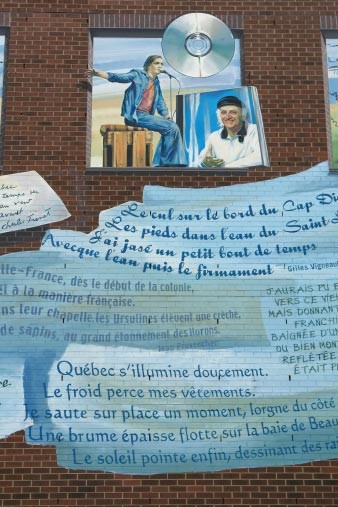 Le cul sur le bord du Cap Di
Les pieds dans l'eau du Saint-
J'ai jasé un petit bout de temps
Avecque l'eau puis le firmament
Gilles Vigneau
lle-France, dès le début de la colonie,
à la manière française.
ns leur chapelle, les Ursulines élèvent une crèche,
de sapins, au grand étonnement des Hurons.
J'AURAIS PU E
VERS CE VIE
MAIS DONNANT
FRANCHI
BAIGNÉE D'UN
OU BIEN MON
REFLÉTÉE
ÉTAIT P
Québec s'illumine doucement.
Le froid perce mes vêtements.
Je saute sur place un moment, lorgne du côté
Une brume épaisse flotte sur la baie de Beau
Le soleil pointe enfin, dessinant des ra